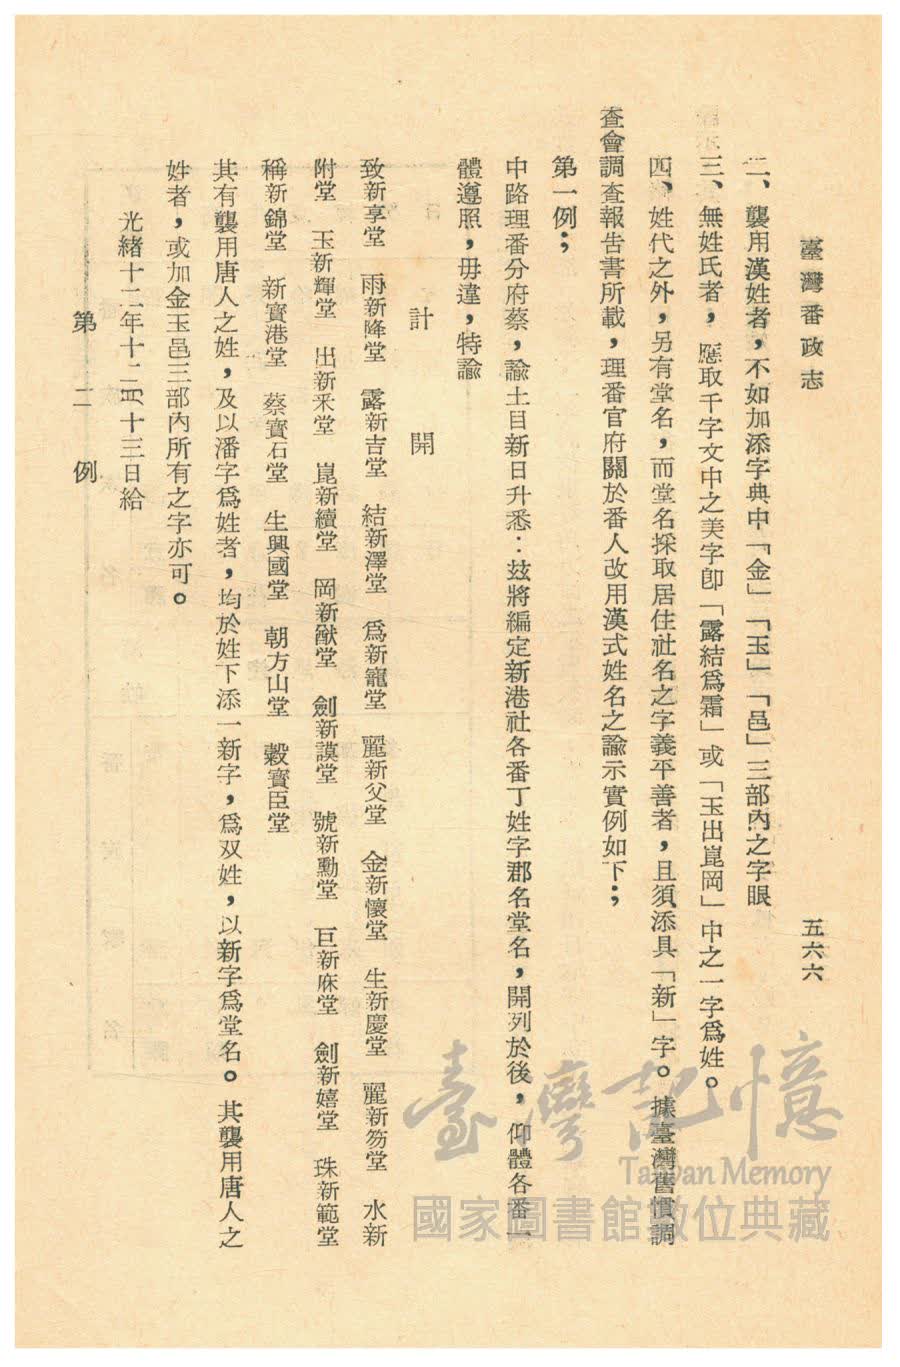 臺灣番政志
五六六
二、襲用漢姓者，不如加添字典中「金」「玉」「邑」三部內之字眼
三、無姓氏者，應取千字文中之美字卽「露結爲霜」或「玉出崑岡」中之一字爲姓。
四、姓代之外，另有堂名，而堂名採取居住社名之字義平善者，且須添具「新」字。據臺灣舊慣調
查會調查報告書所載，理番官府關於番人改用漢式姓名之諭示實例如下；
第一例；
中路理番分府蔡，諭土目新日升悉：玆將編定新港社各番丁姓字郡名堂名，開列於後，仰體各番一
體遵照，毋違，特諭
計開
致新享堂　雨新降堂　露新吉堂　結新澤堂　爲新寵堂　麗新父堂　金新懷堂　生新慶堂　麗新笏堂　水新
附堂　玉新輝堂　出新釆堂　崑新續堂　岡新猷堂　劍新謨堂　號新勳堂　巨新庥堂　劍新嬉堂　珠新範堂
稱新錦堂　新寳港堂　蔡寳石堂　生興國堂　朝方山堂　穀寳臣堂
其有襲用唐人之姓，及以潘字爲姓者，均於姓下添一新字，爲双姓，以新字爲堂名。其襲用唐人之
姓者，或加金玉邑三部內所有之字亦可。
光緒十二年十二月十三日給
第二例
臺灣記憶
Taiwan Memory
國家圖書館數位典藏